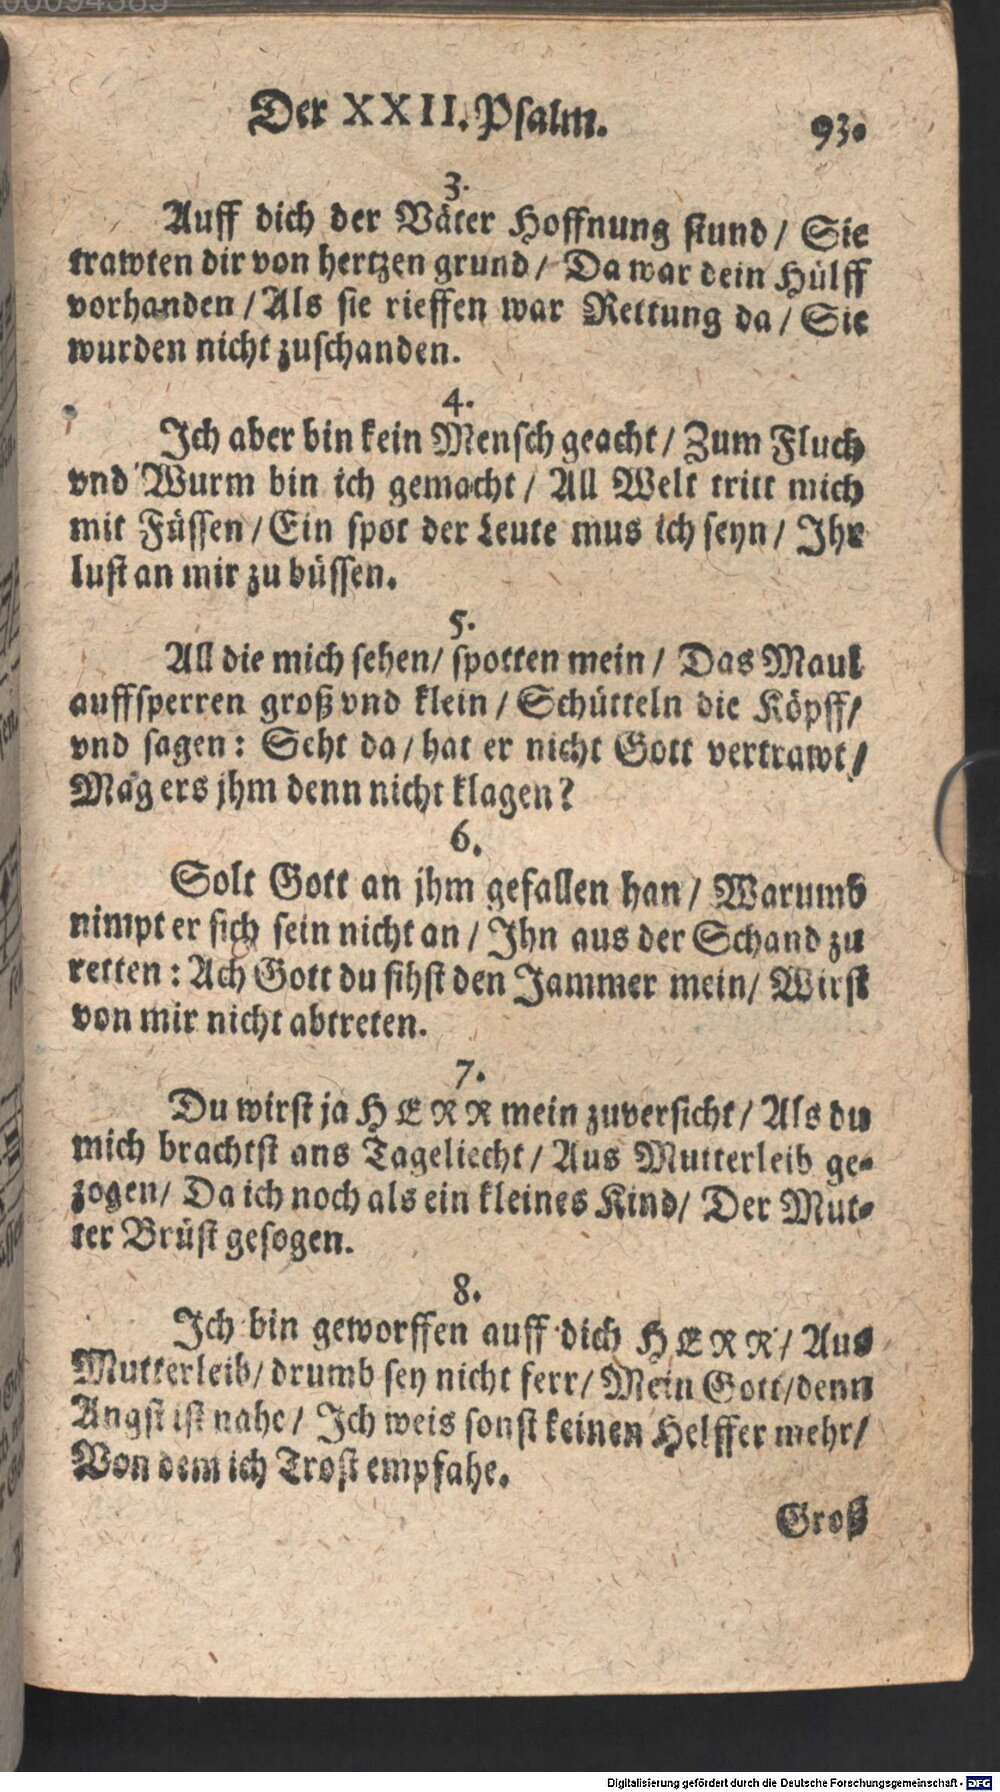 00094385
Der XXII. Psalm. 93.
3.
Auff dich der Väter Hoffnung stund / Sie
trawten dir von hertzen grund / Da war dein Hülff
vorhanden / Als sie rieffen war Rettung da / Sie
wurden nicht zuschanden.
4.
Ich aber bin kein Mensch geacht / Zum Fluch
vnd Wurm bin ich gemacht / All Welt tritt mich
mit Füssen / Ein spot der Leute mus ich seyn / Ihr
lust an mir zu büssen.
5.
All die mich sehen / spotten mein / Das Maul
auffsperren groß vnd klein / Schütteln die Köpff /
vnd sagen: Seht da / hat er nicht Gott vertrawt /
Mag ers jhm denn nicht klagen?
6.
Solt Gott an jhm gefallen han / Warumb
nimpt er sich sein nicht an / Ihn aus der Schand zu
retten: Ach Gott du sihst den Jammer mein / Wirst
von mir nicht abtreten.
7.
Du wirst ja HERR mein zuversicht / Als du
mich brachtst ans Tageliecht / Aus Mutterleib ge-
zogen / Da ich noch als ein kleines Kind / Der Mut-
ter Brüst gesogen.
8.
Ich bin geworffen auff dich HERR / Aus
Mutterleib / drumb sey nicht ferr / Mein Gott / denn
Angst ist nahe / Ich weis sonst keinen Helffer mehr /
Von dem ich Trost empfahe.
Groß
Digitalisierung gefördert durch die Deutsche Forschungsgemeinschaft - DFG